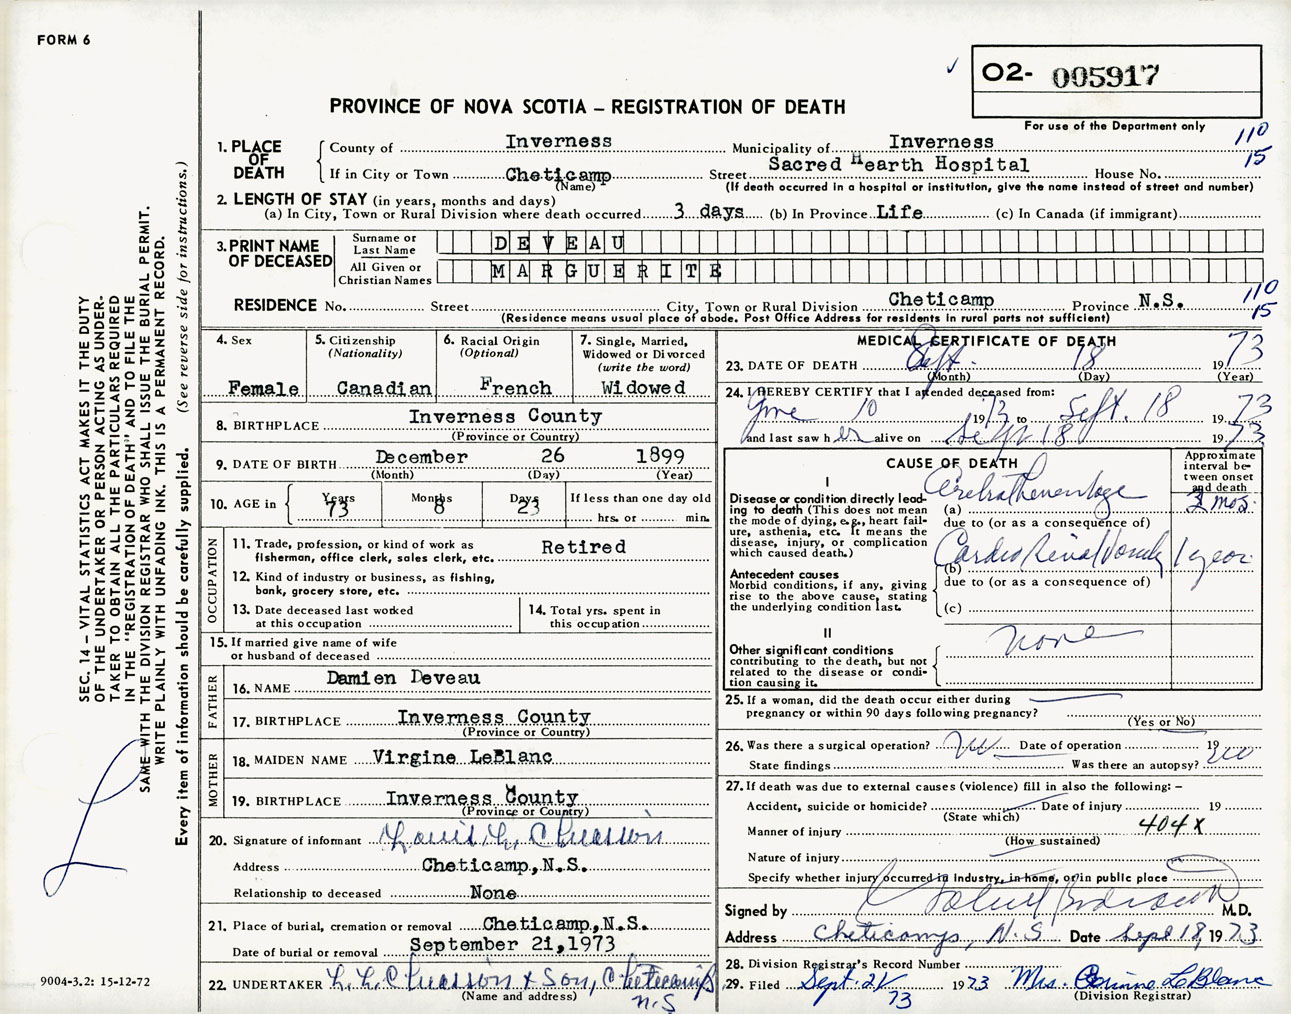 FORM 6
O2- 005917
PROVINCE OF NOVA SCOTIA – REGISTRATION OF DEATH
For use of the Department only
1. PLACE OF DEATH
County of Inverness Municipality of Inverness 110
If in City or Town Cheticamp Street Sacred Hearth Hospital House No. 15
(Name) (If death occurred in a hospital or institution, give the name instead of street and number)
2. LENGTH OF STAY (in years, months and days)
(a) In City, Town or Rural Division where death occurred 3 days (b) In Province Life (c) In Canada (if immigrant)
3. PRINT NAME OF DECEASED
Surname or Last Name DEVEAU
All Given or Christian Names MARGUERITE
RESIDENCE No. Street City, Town or Rural Division Cheticamp Province N.S. 110 15
(Residence means usual place of abode. Post Office Address for residents in rural parts not sufficient)
4. Sex
Female
5. Citizenship
(Nationality)
Canadian
6. Racial Origin
(Optional)
French
7. Single, Married,
Widowed or Divorced
(write the word)
Widowed
8. BIRTHPLACE Inverness County
(Province or Country)
9. DATE OF BIRTH December 26 1899
(Month) (Day) (Year)
10. AGE in Years Months Days If less than one day old
73 8 23 hrs. or min.
OCCUPATION
11. Trade, profession, or kind of work as Retired
fisherman, office clerk, sales clerk, etc.
12. Kind of industry or business, as fishing,
bank, grocery store, etc.
13. Date deceased last worked
at this occupation
14. Total yrs. spent in
this occupation
15. If married give name of wife
or husband of deceased
FATHER
16. NAME Damien Deveau
17. BIRTHPLACE Inverness County
(Province or Country)
MOTHER
18. MAIDEN NAME Virgine LeBlanc
19. BIRTHPLACE Inverness County
(Province or Country)
20. Signature of informant Louis L. Chiasson
Address Cheticamp,N.S.
Relationship to deceased None
21. Place of burial, cremation or removal Cheticamp,N.S.
Date of burial or removal September 21,1973
22. UNDERTAKER L.L. Chiasson & Son, Cheticamp
(Name and address) N.S
MEDICAL CERTIFICATE OF DEATH
23. DATE OF DEATH Sept. 18 1973
(Month) (Day) (Year)
24. I HEREBY CERTIFY that I attended deceased from:
June 10 1973 to Sept. 18 1973
and last saw her alive on Sept 18 1973
CAUSE OF DEATH
Approximate
interval be-
tween onset
and death
I
Disease or condition directly lead-
ing to death (This does not mean
the mode of dying, e.g., heart fail-
ure, asthenia, etc. It means the
disease, injury, or complication
which caused death.)
(a) mos.
due to (or as a consequence of)
Antecedent causes
Morbid conditions, if any, giving
rise to the above cause, stating
the underlying condition last.
(b) Cardio Renal 1 year
due to (or as a consequence of)
(c)
II
Other significant conditions
contributing to the death, but not
related to the disease or condi-
tion causing it.
none
25. If a woman, did the death occur either during
pregnancy or within 90 days following pregnancy?
(Yes or No)
26. Was there a surgical operation? no Date of operation 19
State findings Was there an autopsy? no
27. If death was due to external causes (violence) fill in also the following: –
Accident, suicide or homicide? Date of injury 19
(State which)
Manner of injury 404X
(How sustained)
Nature of injury
Specify whether injury occurred in Industry, in home, or in public place
Signed by M.D.
Address Cheticamp, N.S Date Sept 18, 1973
28. Division Registrar's Record Number
29. Filed Sept. 21/73 1973 Mrs. Corinne LeBlanc
(Division Registrar)
SEC. 14 – VITAL STATISTICS ACT MAKES IT THE DUTY
OF THE UNDERTAKER OR PERSON ACTING AS UNDER-
TAKER TO OBTAIN ALL THE PARTICULARS REQUIRED
IN THE "REGISTRATION OF DEATH" AND TO FILE THE
SAME WITH THE DIVISION REGISTRAR WHO SHALL ISSUE THE BURIAL PERMIT.
WRITE PLAINLY WITH UNFADING INK. THIS IS A PERMANENT RECORD.
Every item of information should be carefully supplied. (See reverse side for instructions.)
9004-3.2: 15-12-72